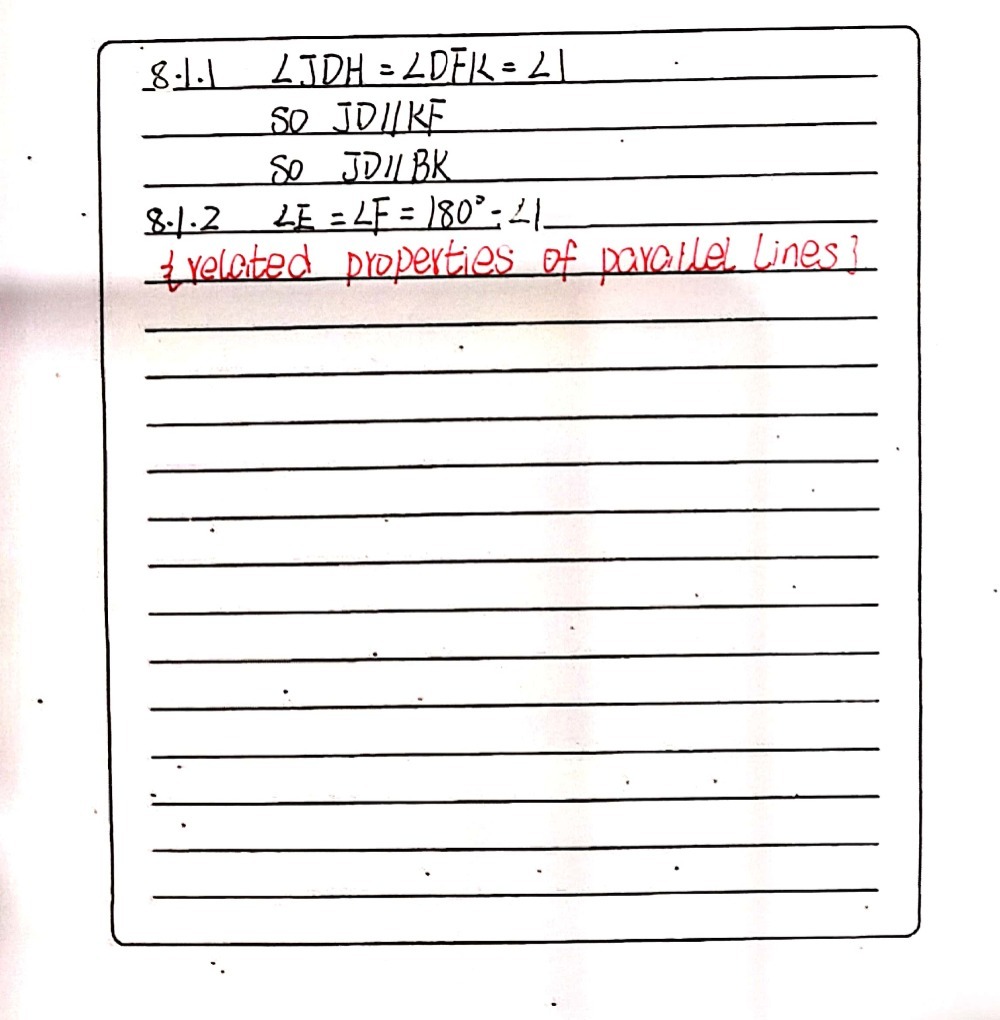 8.1.1 ∠JDH = ∠DFK = ∠1
so JD//KF
so JD//BK
8.1.2 ∠E = ∠F = 180° - ∠1
{related properties of parallel lines}